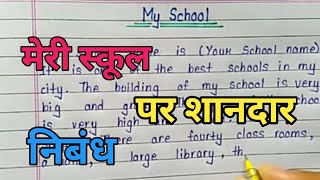 My School
मेरी स्कूल
e is (Your School name)
It is a of the best schools in my
city. The building of my school is very
big and g
पर शानदार
is very high
निबंध
ere are fourty class rooms,
large library, th